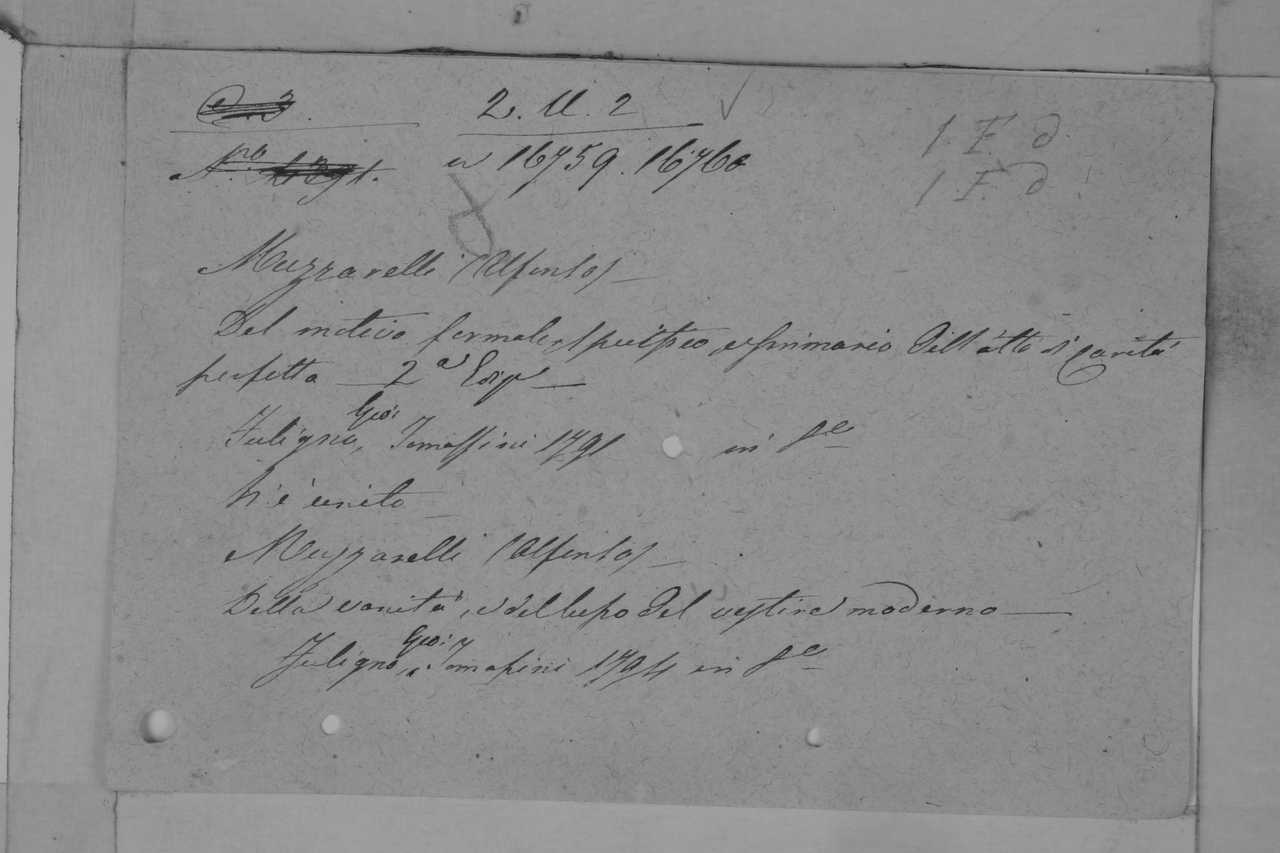 2. U. 2
N.ro
n 16759. 16760
1 F d
1 F. d
Muzzarelli (Alfonso)
Del motivo formale, specifico, e primario dell'atto di carità
perfetta 2a Ediz.e
Fuligno, Gio: Tomassini 1791 in 8.o
Vi è unito
Muzzarelli (Alfonso)
Della vanità, e del lusso del vestire moderno
Fuligno, Gio: Tomasini 1794 in 8.o